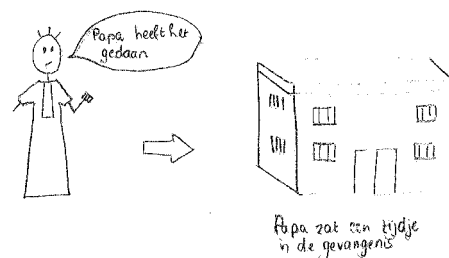 Papa heeft het
gedaan
Papa zat een tijdje
in de gevangenis